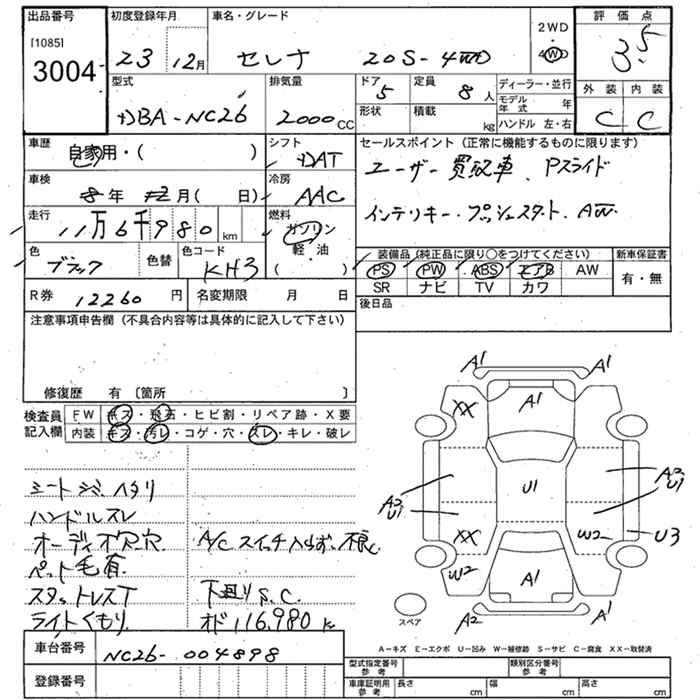 出品番号
[1085]
3004
初度登録年月
23 12月
車名・グレード
セレナ 20S-4WD
2WD
4WD
評価点
3.5
外装 内装
C C
型式
DBA-NC26
排気量
2000 CC
ドア
5
定員
8 人
形状
積載
kg
ディーラー・並行
モデル年式 年
ハンドル 左・右
車歴
自家用・( )
シフト
DAT
車検
8年 12月( 日)
冷房
AAC
走行
11万6千980 km
燃料
ガソリン
軽・油
( )
色
ブラック
色替
色コード
KH3
セールスポイント(正常に機能するものに限ります)
ユーザー買取車、Pスライド
インテリキー・プッシュスタート、AW
装備品(純正品に限り〇をつけてください)
新車保証書
PS PW ABS エアB AW
SR ナビ TV カワ
有・無
R券 12260 円
名変期限 月 日
後日品
注意事項申告欄(不具合内容等は具体的に記入して下さい)
修復歴 有〔箇所 〕
検査員記入欄
FW キズ・飛石・ヒビ割・リペア跡・X要
内装 キズ・汚レ・コゲ・穴・スレ・キレ・破レ
シートシミ、ヘタリ
ハンドルスレ
オーディオ穴
A/Cスイッチ入らず、不良
ペット毛有
スタットレスT
下廻りS.C.
ライトくもり
オド116,980k
A1
A1
A1
A1
XX
U1
A2
U1
A3
U1
XX
W2
W2
U3
A1
A2
A1
スペア
A-キズ E-エクボ U-凹み W-補修跡 S-サビ C-腐食 XX-取替済
車台番号
NC26-004898
登録番号
型式指定番号参考
類別区分番号参考
車庫証明用参考
長さ cm
幅 cm
高さ cm